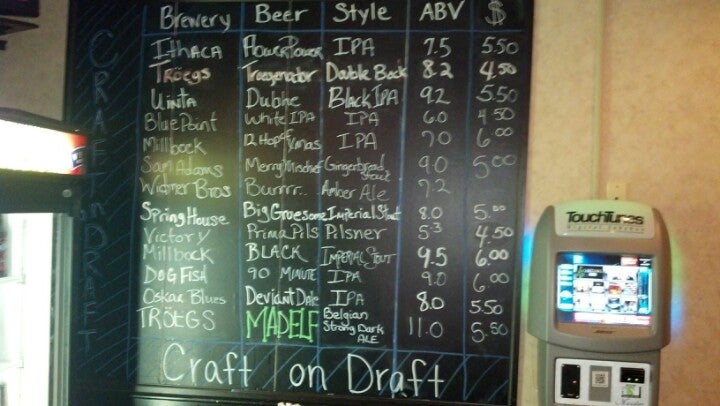 Brewery Beer Style ABV $
Ithaca FlowerPower IPA 7.5 5.50
Tröegs Troegenator Double Bock 8.2 4.50
Uinta Dubhe Black IPA 9.2 5.50
Blue Point White IPA IPA 6.0 4.50
Millbock 12 Hops of Xmas IPA 7.0 6.00
Sam Adams Merry Mischief Gingerbread Stout 9.0 5.00
Widmer Bros Burrrr. Amber Ale 7.2
Spring House Big Gruesome Imperial Stout 8.0 5.00
Victory Prima Pils Pilsner 5.3 4.50
Millbock BLACK IMPERIAL Stout 9.5 6.00
DOGFISH 90 MINUTE IPA 9.0 6.00
Oskar Blues Deviant Dale IPA 8.0 5.50
TRÖEGS MADELF Belgian Strong Dark ALE 11.0 5.50
Craft on Draft
CRAFT ON DRAFT
TouchTunes
Digital Jukebox